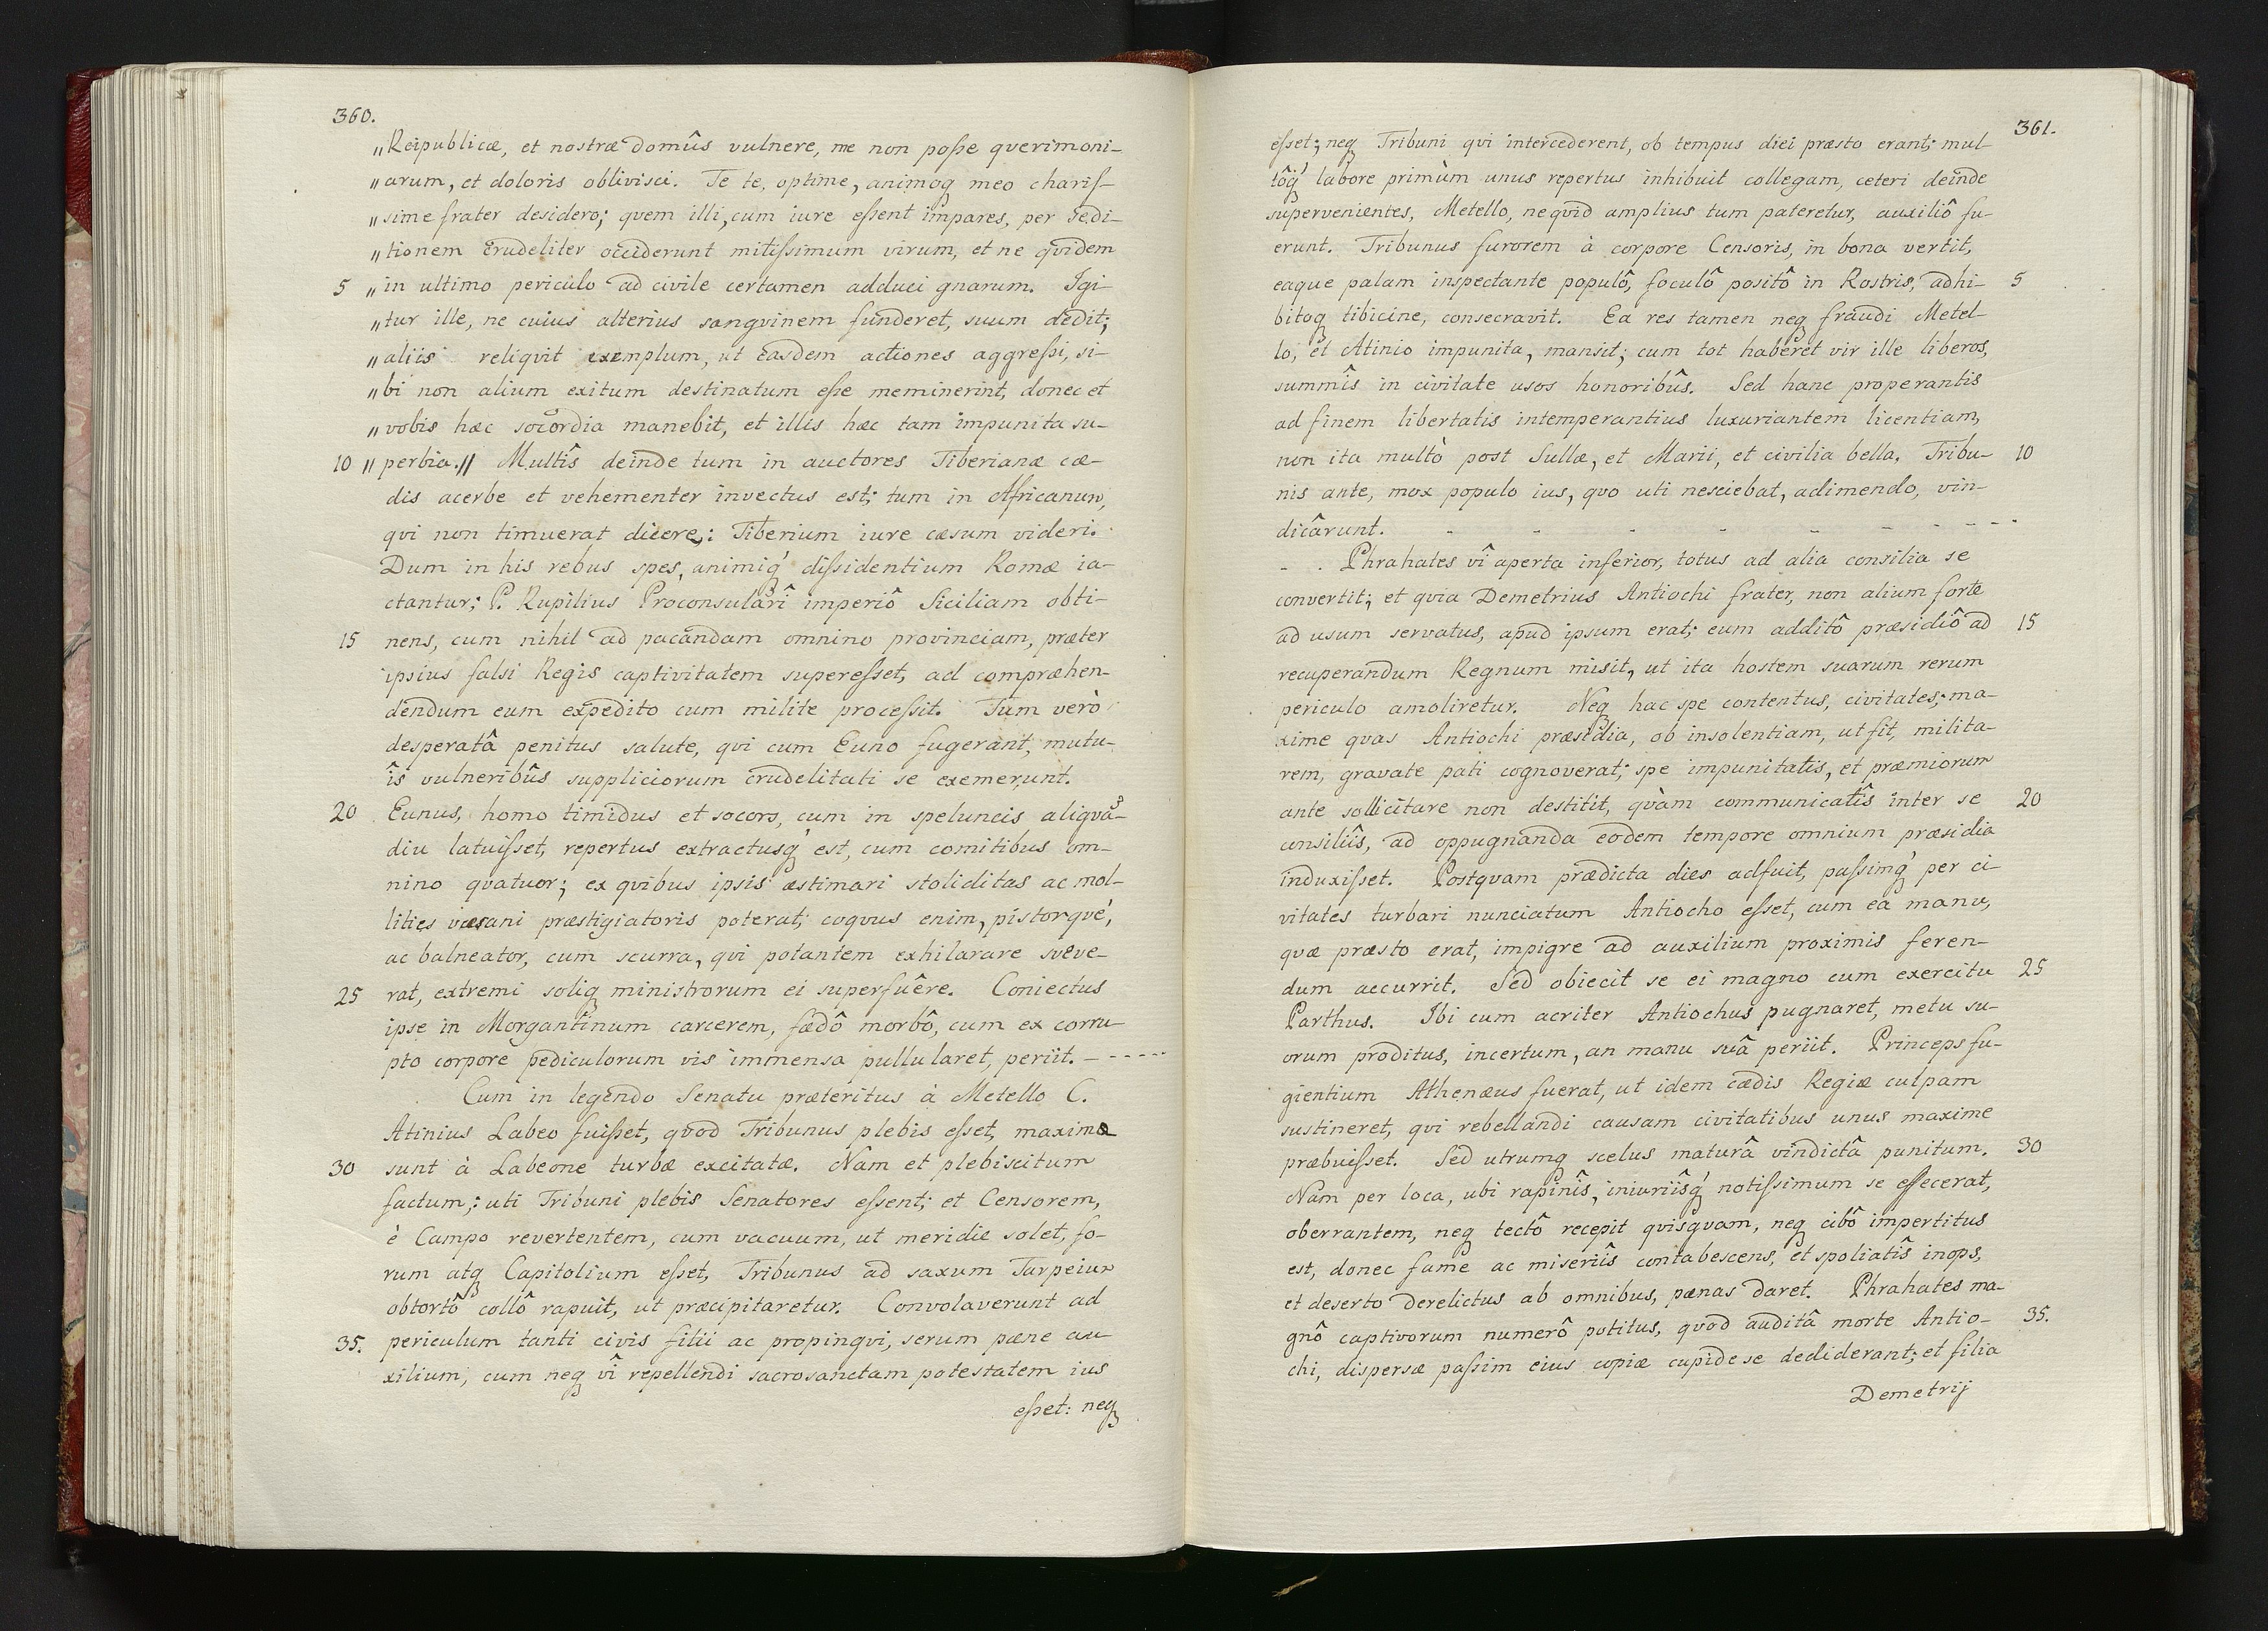 360.
„Reipublicæ, et nostræ domûs vulnere, me non poſse querimoni-
„arum, et doloris oblivisci. Te te, optime, animoq́ meo chariſ-
„sime frater desidero; quem illi, cum iure eſsent impares, per sedi-
„tionem crudeliter occiderunt mitiſsimum virum, et ne quidem
5 „in ultimo periculo ad civile certamen adduci gnarum. Igi-
„tur ille, ne cuius alterius sanguinem funderet, suum dedit;
„aliis reliquit exemplum, ut easdem actiones aggreſsi, si-
„bi non alium exitum destinatum eſse meminerint, donec et
„vobis hæc socordia manebit, et illis hæc tam impunita su-
10 „perbia.„ Multîs deinde tum in auctores Tiberianæ cæ-
dis acerbe et vehementer invectus est; tum in Africanum,
qui non timuerat dicere,: Tiberium iure cæsum videri.
Dum in his rebus spes, animiq́ diſsidentium Romæ ia-
ctantur; P. Rupilius Proconsularî imperiô Siciliam obti-
15 nens, cum nihil ad pacandam omnino provinciam, præter
ipsius falsi Regis captivitatem supereſset, ad compræhen-
dendum eum expedito cum milite proceſsit. Tum verò
desperatâ penitus salute, qui cum Euno fugerant, mutu-
îs vulneribûs suppliciorum crudelitati se exemerunt.
20 Eunus, homo timidus et socors, cum in speluncis aliquã-
diu latuiſset, repertus extractusq́ est, cum comitibus om-
nino quatuor; ex quibus ipsis æstimari stoliditas ac mol-
lities væsani præstigiatoris poterat; coquus enim, pistorqué,
ac balneator, cum scurra, qui potantem exhilarare sueve-
25 rat, extremi soliq ministrorum ei superfuêre. Coniectus
ipse in Morgantinum carcerem, fœdô morbô, cum ex corru-
pto corpore pediculorum vis immensa pullularet, periit. – - - - - -
Cum in legendo Senatu præteritus à Metello C.
Atinius Labeo fuiſset, quod Tribunus plebis eſset, maximæ
30 sunt à Labeone turbæ excitatæ. Nam et plebiscitum
factum,: uti Tribuni plebis Senatores eſsent; et Censorem,
è Campo revertentem, cum vacuum, ut meridie solet, fo-
rum atq Capitolium eſset, Tribunus ad saxum Tarpeium
obtortô collô rapuit, ut præcipitaretur. Convolaverunt ad
35. periculum tanti civis filii ac propinqui, serum pæne au-
xilium, cum neq vî repellendi sacrosanctam potestatem ius
eſset: neq
361.
eſset; neq Tribuni qui intercederent, ob tempus diei præsto erant; mul-
tôq́ labore primùm unus repertus inhibuit collegam, ceteri deinde
supervenientes, Metello, nequid amplius tum pateretur, auxiliô fu-
erunt. Tribunus furorem à corpore Censoris, in bona vertit,
eaque palam inspectante populô, foculô positô in Rostris, adhi- 5
bitoq tibicine, consecravit. Ea res tamen neq fraudi Metel-
lo, et Atinio impunita, mansit; cum tot haberet vir ille liberos,
summîs in civitate usos honoribûs. Sed hanc properantis
ad finem libertatis intemperantius luxuriantem licentiam,
non ita multò post Sullæ, et Marii, et civilia bella, Tribu- 10
nis ante, mox populo ius, quo uti nesciebat, adimendo, vin-
dicârunt. - - - - - - - - -
- . Phrahates vî aperta inferior, totus ad alia consilia se
convertit; et quia Demetrius Antiochi frater, non alium forte
ad usum servatus, apud ipsum erat; eum additô præsidiô ad 15
recuperandum Regnum misit, ut ita hostem suarum rerum
periculo amoliretur. Neq hac spe contentus, civitates, ma-
xime quas Antiochi præsidia, ob insolentiam, ut fit, milita-
rem, gravate pati cognoverat; spe impunitatis, et præmiorum
ante sollicitare non destitit, quàm communicatîs inter se 20
consiliîs, ad oppugnanda eodem tempore omnium præsidia
induxiſset. Postquam prædicta dies adfuit, paſsimq́ per ci-
vitates turbari nunciatum Antiocho eſset, cum eâ manu,
quæ præsto erat, impigre ad auxilium proximis feren-
dum accurrit. Sed obiecit se ei magno cum exercitu 25
Parthus. Ibi cum acriter Antiochus pugnaret, metu su-
orum proditus, incertum, an manu suâ periit. Princeps fu-
gientium Athenæus fuerat, ut idem cædis Regiæ culpam
sustineret, qui rebellandi causam civitatibus unus maxime
præbuiſset. Sed utrumq scelus maturâ vindictâ punitum. 30
Nam per loca, ubi rapinîs, iniuriîsq́ notiſsimum se effecerat,
oberrantem, neq tectô recepit quisquam, neq cibô impertitus
est, donec fame ac miseriîs contabescens, et spoliatîs inops,
et deserto derelictus ab omnibus, pænas daret. Phrahates ma-
gnô captivorum numerô potitus, quod auditâ morte Antio- 35.
chi, dispersæ paſsim eius copiæ cupide se dediderant; et filia
Demetrij